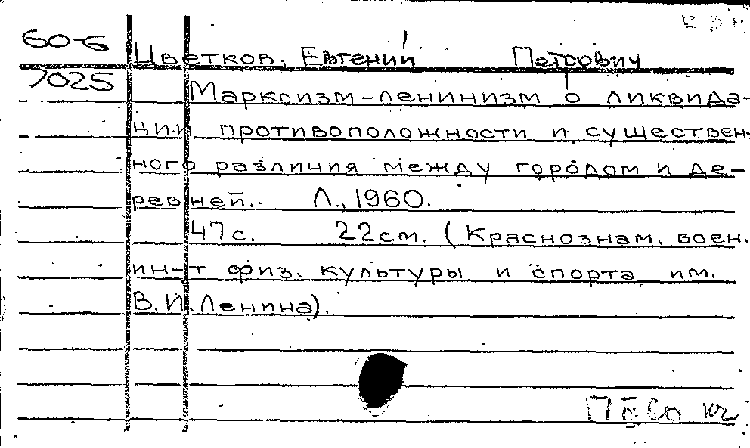 60-6
Цветков, Евгений Петрович
7025
Марксизм-ленинизм о ликвида-
ции противоположности и существен-
ного различия между городом и де-
ревней. Л., 1960.
47с. 22см. (Краснознам. воен.
ин-т физ. культуры и спорта им.
В.И. Ленина).